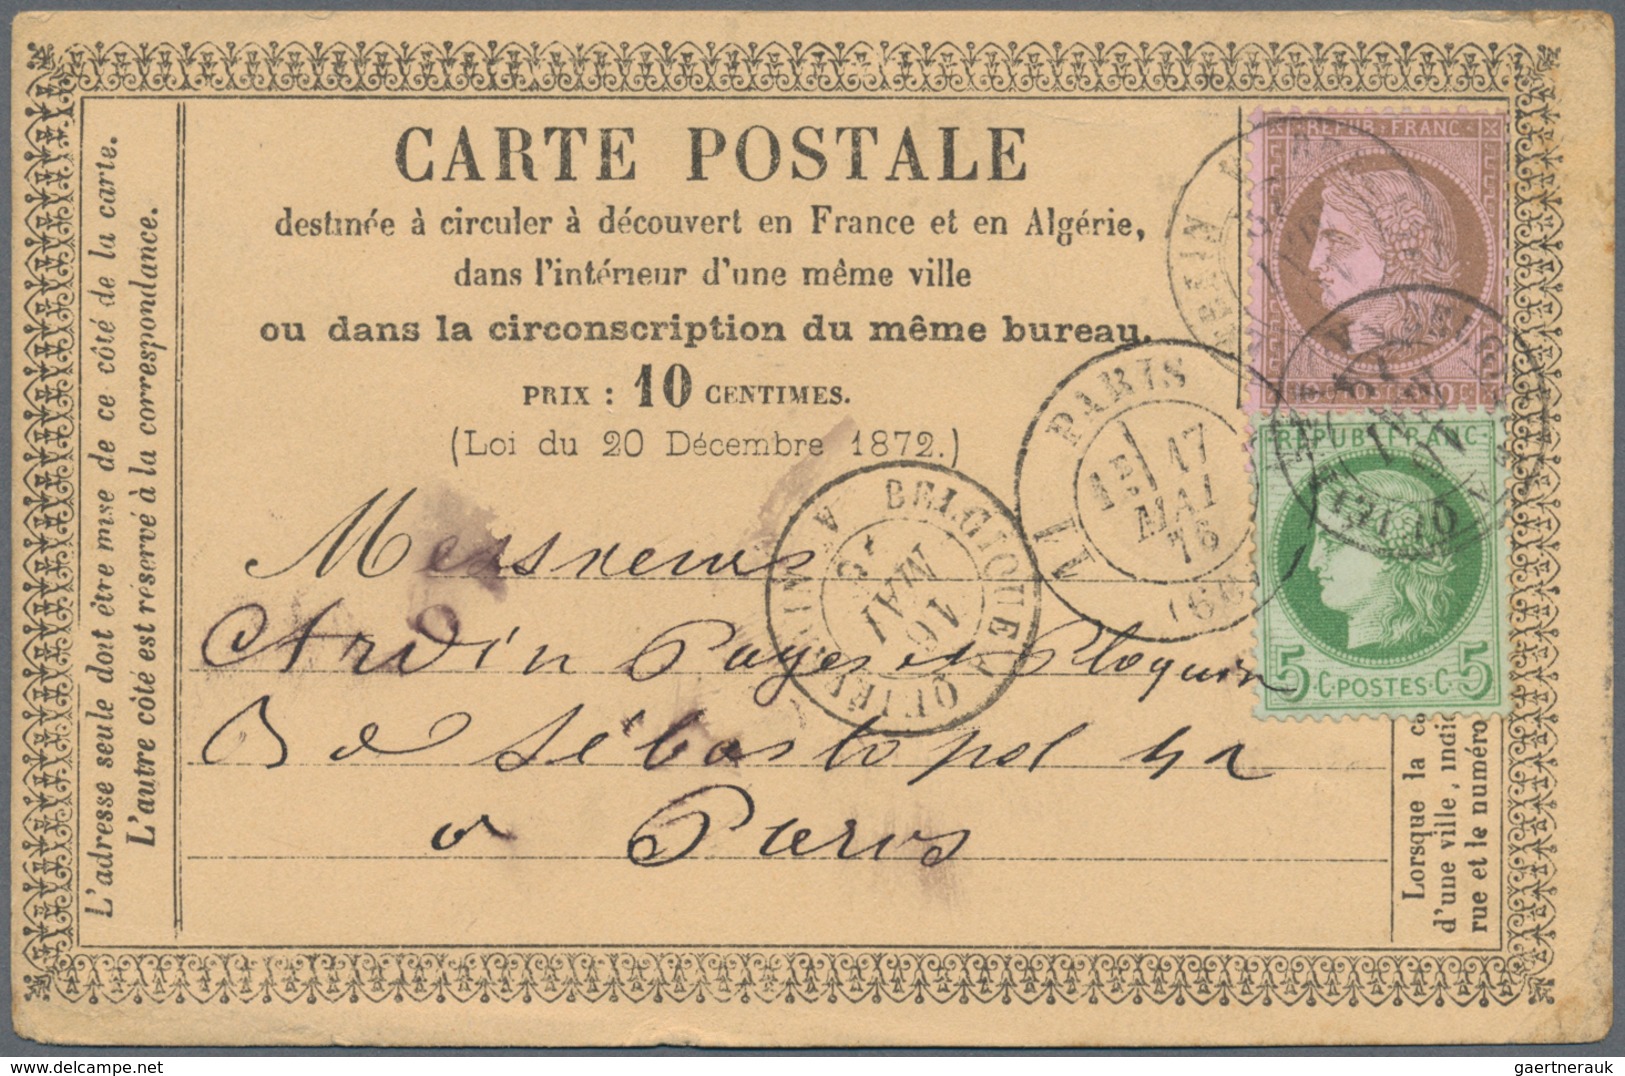 CARTE POSTALE
destinée à circuler à découvert en France et en Algérie,
dans l'intérieur d'une même ville
ou dans la circonscription du même bureau.
PRIX : 10 CENTIMES.
(Loi du 20 Décembre 1872.)
L'adresse seule doit être mise de ce côté de la carte.
L'autre côté est réservé à la correspondance.
Messieurs
Ardin Payes et Ploquin
Bd Sébastopol 42
a Paris
REPUB FRANC
REPUB FRANC
5 C·POSTES·C 5
PARIS
17
MAI
75
BELGIQUE A
16
MAI
Lorsque la
d'une ville, indi
rue et le numéro
gaertnerauk